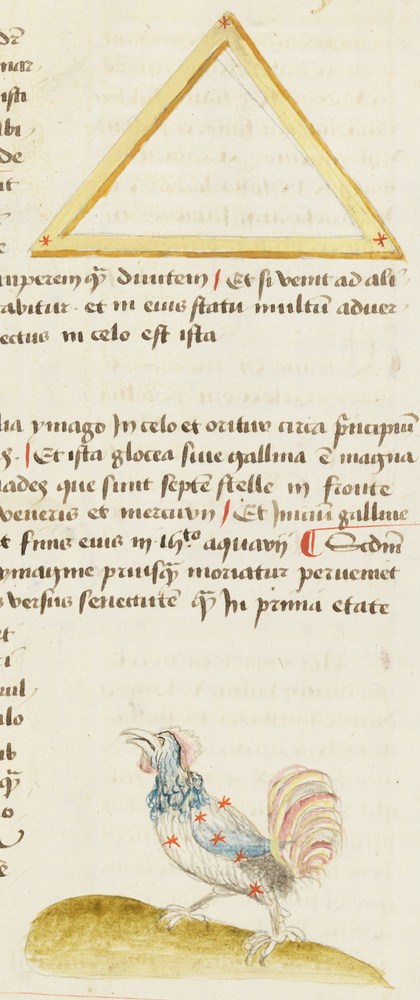 nar
isti
ibi
de
it
e
diuitem / Et si venit ad ali
rabitur · et in eius statu multū aduer
ectus in celo est ista
lia ymago In celo et oritur circa pͥncipiū
/ Et ista glocea siue gallina ē magna
iades que sunt septē stelle in fronte
veneris et mercurij / Et Iniciū galline
t finis eius in 16to aquarij ¶ Scdm̄
ymagine priusq̄ moriatur perueniet
s versus senectutē q̄ In prima etate
et
ri
nul
ulo
ub
q̄
io
e